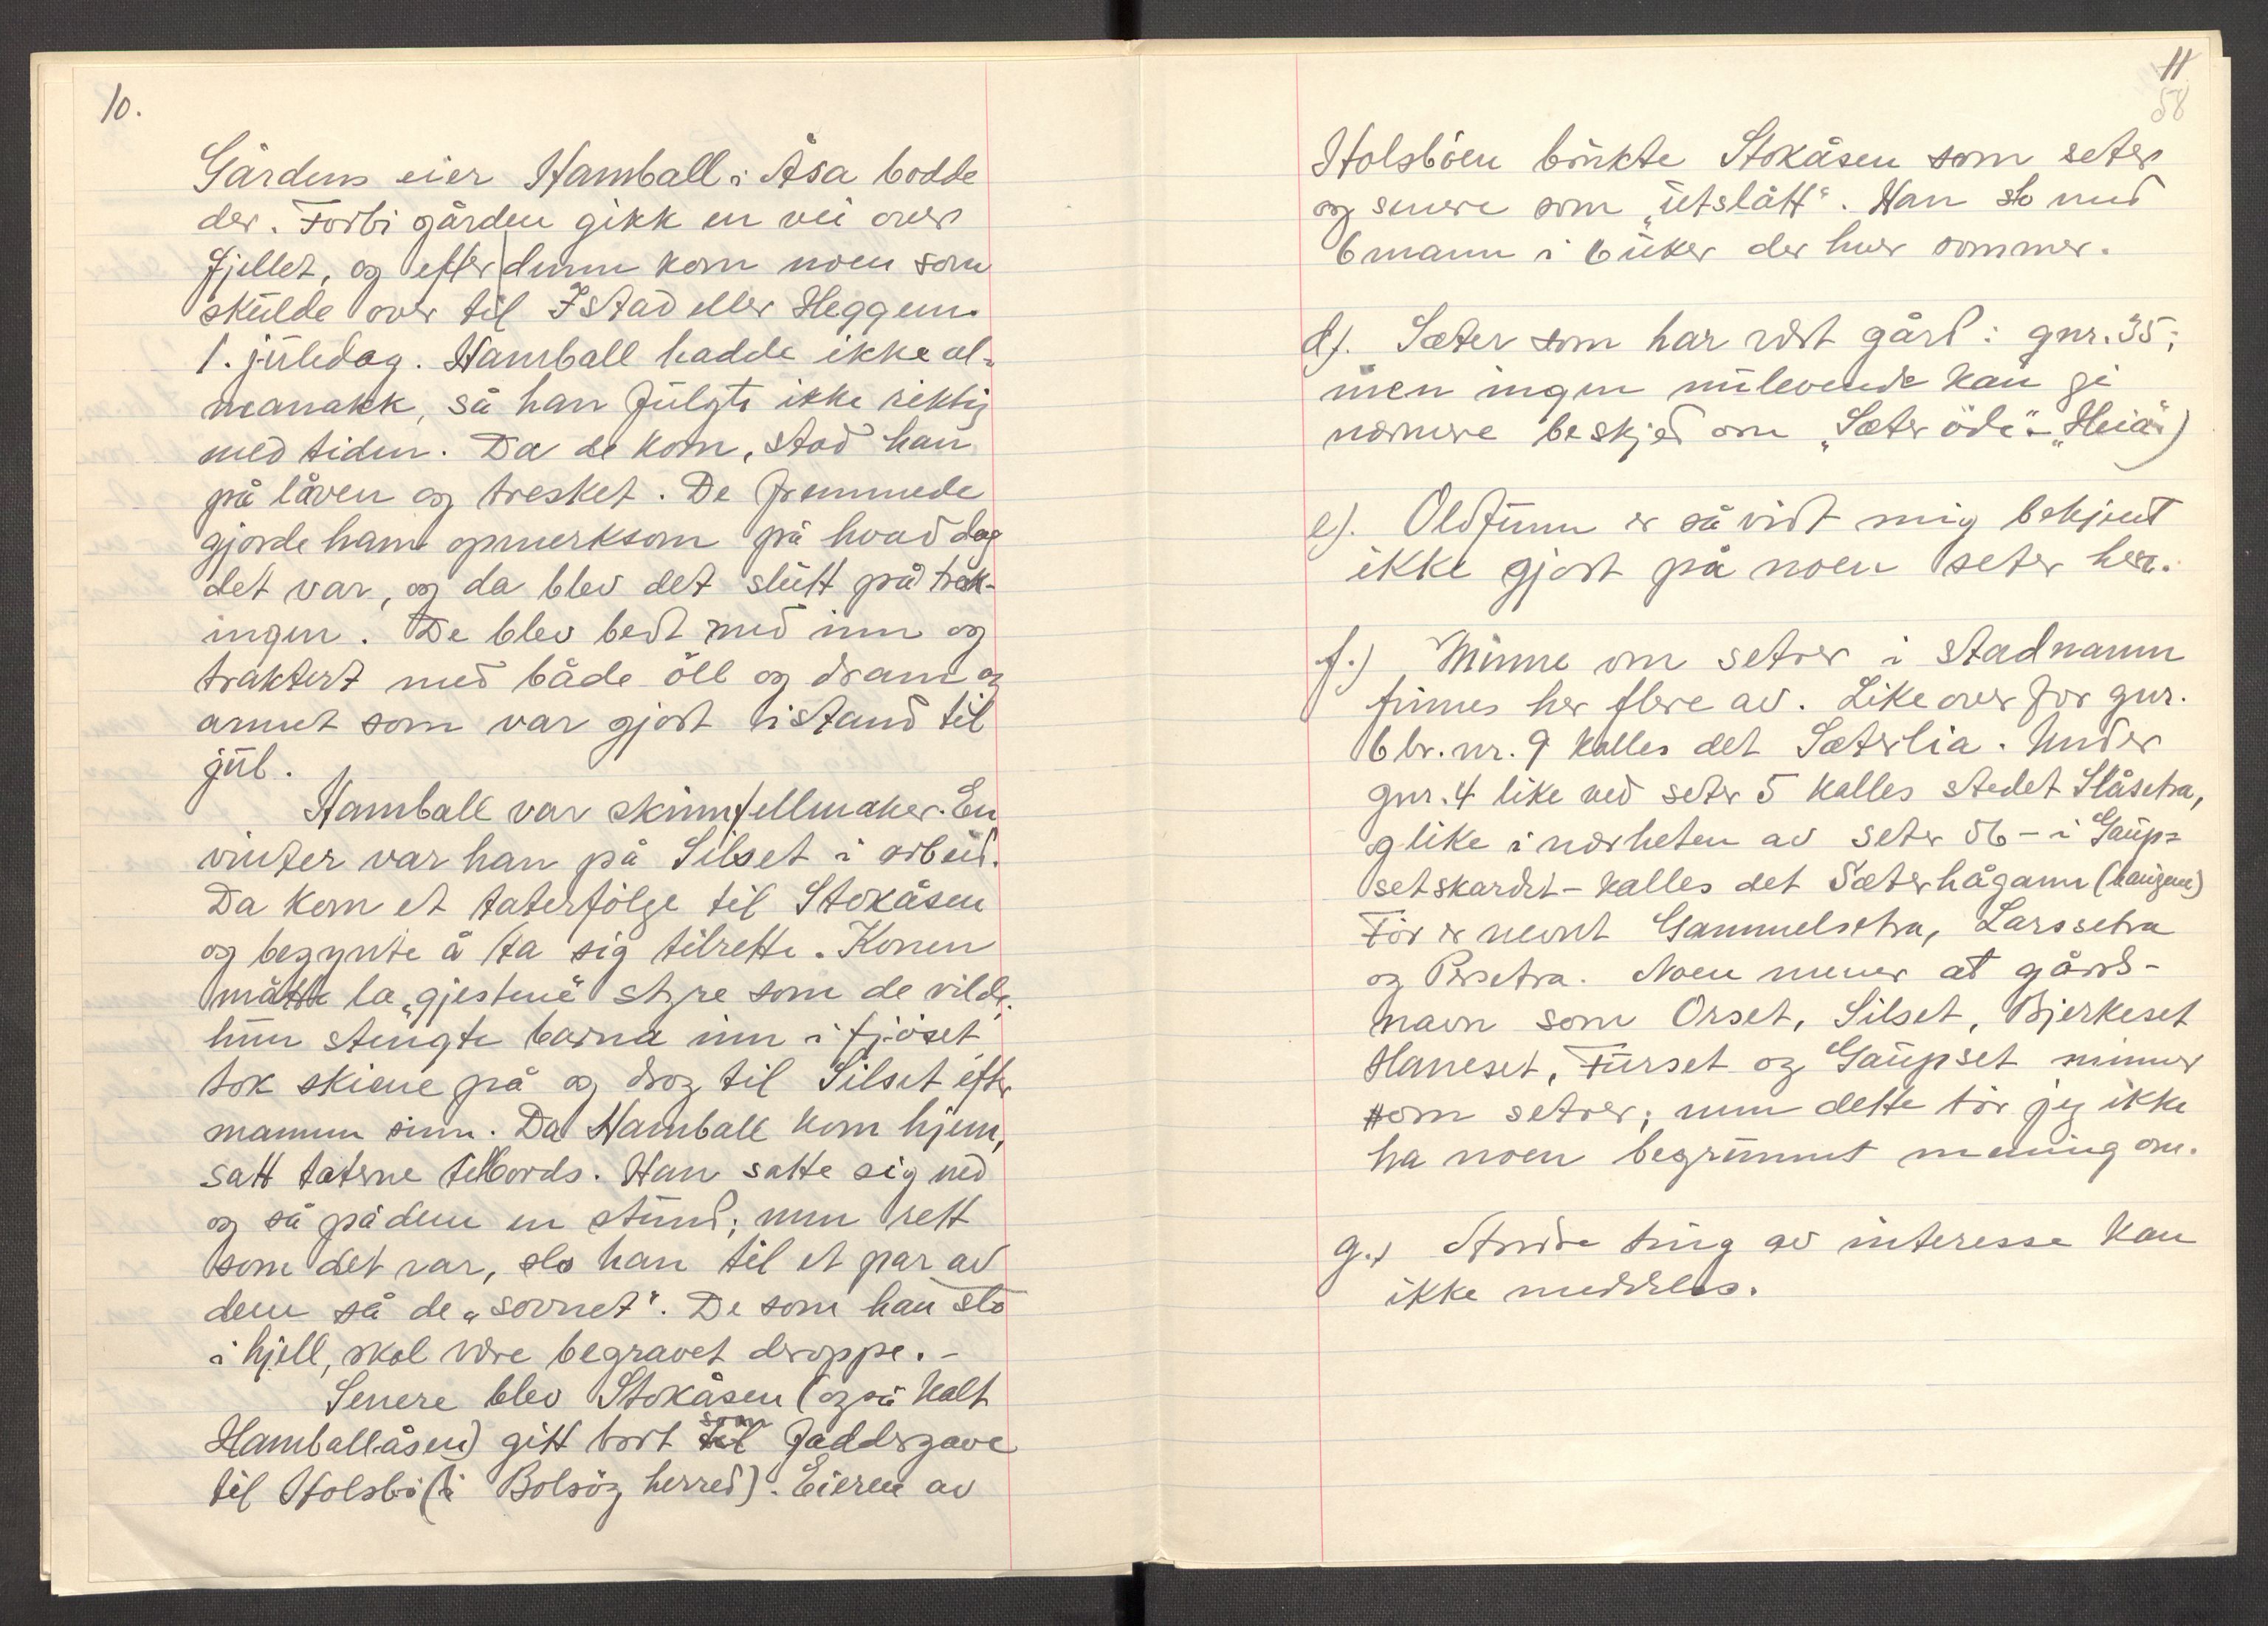 10.
Gårdens eier Hamball i Åsa bodde
der. Forbi gården gikk en vei over
fjellet, og efter denne kom noen som
skulde over til Istad eller Heggem.
1. juledag. Hamball hadde ikke al-
manakk, så han fulgte ikke riktig
med tiden. Da de kom, stod han
på låven og tresket. De fremmede
gjorde ham opmerksom på hvad dag
det var, og da blev det slutt på tresk-
ingen. De blev bedt med inn og
traktert med både öll og dram og
annet som var gjort istand til
jul.
Hamball var skinnfellmaker. En
vinter var han på Silset i arbeid.
Da kom et taterfölge til Stokåsen
og begynte å ta sig tilrette. Konen
måtte la „gjestene" styre som de vilde;
hun stengte barna inn i fjöset
tok skiene på og drog til Silset efter
mannen sinn. Da Hamball kom hjem,
satt taterne tilbords. Han satte sig ned
og så på dem en stund; men rett
som det var, slo han til et par av
dem så de „sovnet". De som han slo
i hjell, skal være begravet deroppe. -
Senere blev Stokåsen (også kalt
Hamballåsen) gitt bort som faddergave
til Holsbö (i Bolsöy herred). Eieren av
11
58
Holsböen brukte Stokåsen som seter
og senere som „utslått". Han slo med
6 mann i 6 uker der hver sommer.
d). Sæter som har vært gård: gnr. 35;
men ingen nulevende kan gi
nærmere beskjed om „Sæteröde" - „Heia")
e). Oldfunn er så vidt mig bekjent
ikke gjort på noen seter her.
f.) Minne om setrer i stadnamn
finnes her flere av. Like over for gnr.
6 br. nr. 9 kalles det Sæterlia. Under
gnr. 4 like ved seter 5 kalles stedet Slåsetra,
og like i nærheten av seter 56 - i Gaup-
setskardet - kalles det Sæterhågann (haugene)
För er nevnt Gammelsetra, Larssetra
og Persetra. Noen mener at gårds-
navn som Orset, Silset, Bjerkeset
Haneset, Furset og Gaupset minner
om setrer; men dette tör jeg ikke
ha noen begrunnet mening om.
g.) Andre ting av interesse kan
ikke meddeles.